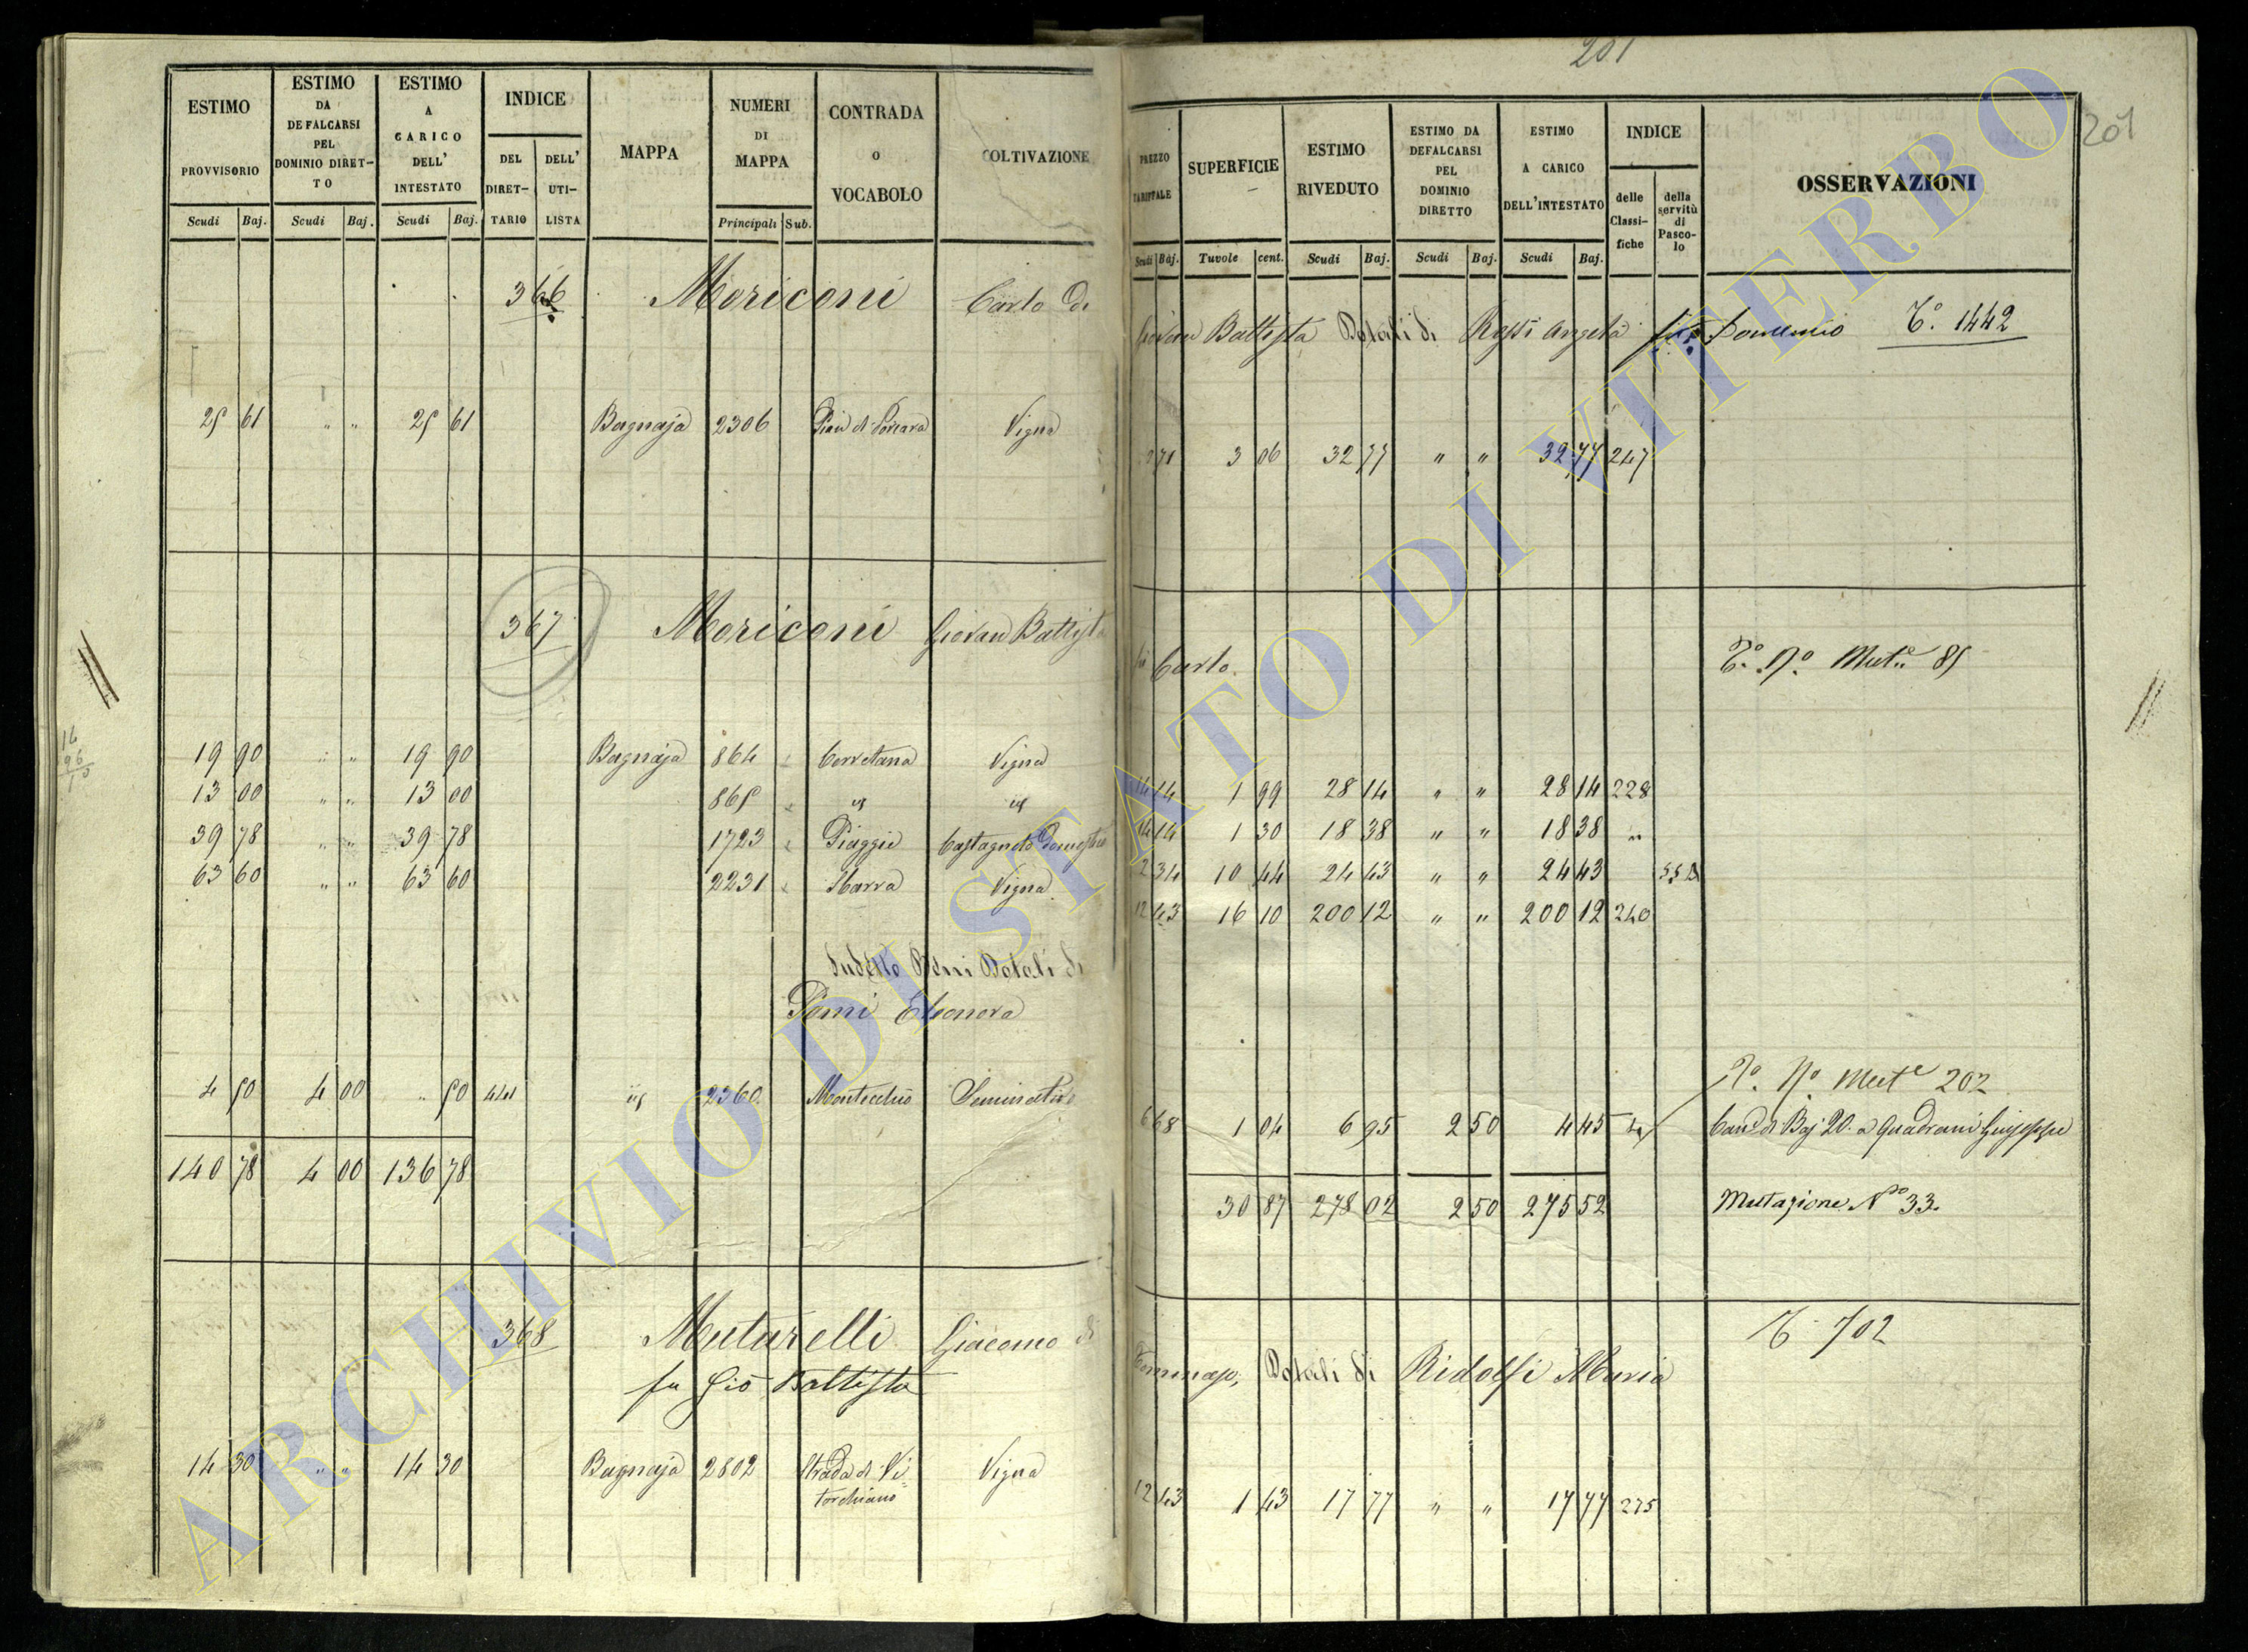 201
201
ESTIMO PROVVISORIO
ESTIMO DA DEFALCARSI PEL DOMINIO DIRET-TO
ESTIMO A CARICO DELL' INTESTATO
INDICE
DEL DIRET-TARIO
DELL' UTI-LISTA
MAPPA
NUMERI DI MAPPA
CONTRADA O VOCABOLO
COLTIVAZIONE
Scudi Baj. Scudi Baj. Scudi Baj. Principali Sub.
366 Moriconi Carlo di
25 61 " " 25 61 Bagnaja 2306 Vigna
367 Moriconi Giovan Battista
19 90 " " 19 90 Bagnaja 864 Cervetana Vigna
13 00 " " 13 00 865 id id
39 78 " " 39 78 1723 Piaggie Castagneto Domestico
63 60 " " 63 60 2231 Sbarra Vigna
Sudetto Beni Dotali di
Pomi Eleonora
4 50 4 00 " 50 441 id 2360 Montecchio Seminativo
140 78 4 00 136 78
368 Mutarelli Giacomo di
fu Gio Battista
14 30 " " 14 30 Bagnaja 2802 Strada di Vi= Vigna
torchiano
PREZZO TARIFFALE
SUPERFICIE
ESTIMO RIVEDUTO
ESTIMO DA DEFALCARSI PEL DOMINIO DIRETTO
ESTIMO A CARICO DELL'INTESTATO
INDICE
delle Classi-fiche
della servitù di Pasco-lo
OSSERVAZIONI
Scudi Baj. Tavole cent. Scudi Baj. Scudi Baj. Scudi Baj.
Giovan Battista Dotali di Rossi Angela Domenico T.° 1442
71 3 06 32 77 " " 32 77 247
Carlo. T.° N.° Mut.e 85
14 14 1 99 28 14 " " 28 14 228
14 14 1 30 18 38 " " 18 38 "
2 34 10 44 24 43 " " 24 43
12 43 16 10 200 12 " " 200 12 240
T.° N.° Mut.e 202
6 68 1 04 6 95 2 50 4 45 Can.e di Baj 20. a Quadrani Giuseppe
30 87 278 02 2 50 275 52 Mutazione N.° 33.
T 702
Tommaso, Dotali di Ridolfi Maria
12 43 1 43 17 77 " " 17 77 275
ARCHIVIO DI STATO DI VITERBO